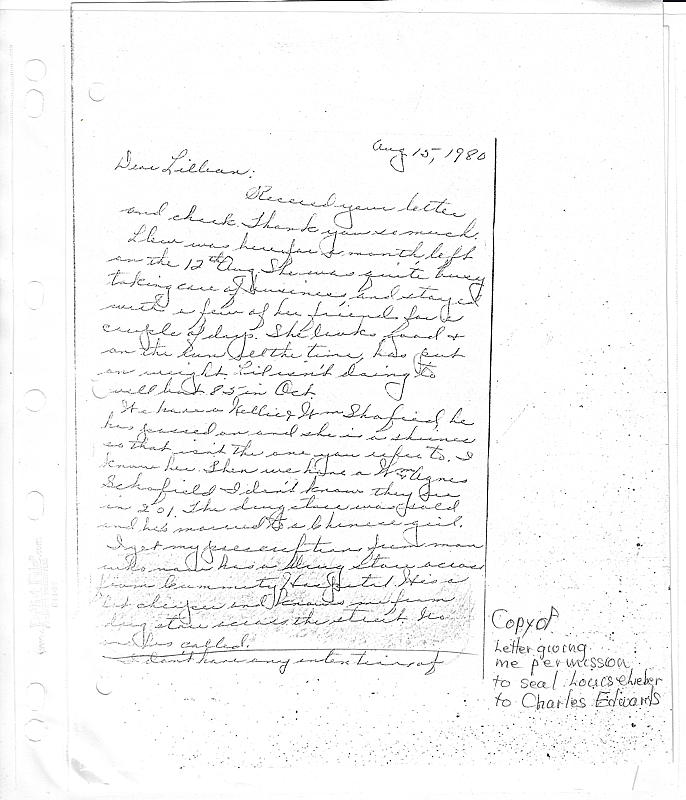 Aug 15, 1980
Dear Lillian:
Received your letter
and check. Thank you so much.
was here for a month, left
on the 12th Aug. She was quite busy
taking care of business, and stayed
with a few of her friends for a
couple of days. She looks good &
on the run all the time, has put
on weight. isn't doing to
well had 85 in Oct
We have a Nellie & Wm he
has passed on and she is a
so that isn't the one you refer to. I
know her. Then we have a Wm & Agnes
Schofield I don't know they are
in 201. The drug store was sold
and he's married to a Chinese girl.
I get my prescription from man
who now has a drug store across
from Community Hospital. He is a
lot cheaper and knows me from
drug store across the street. No
one has called.
I don't have any intentions of
Copy of
Letter giving
me permission
to seal
to Charles Edwards